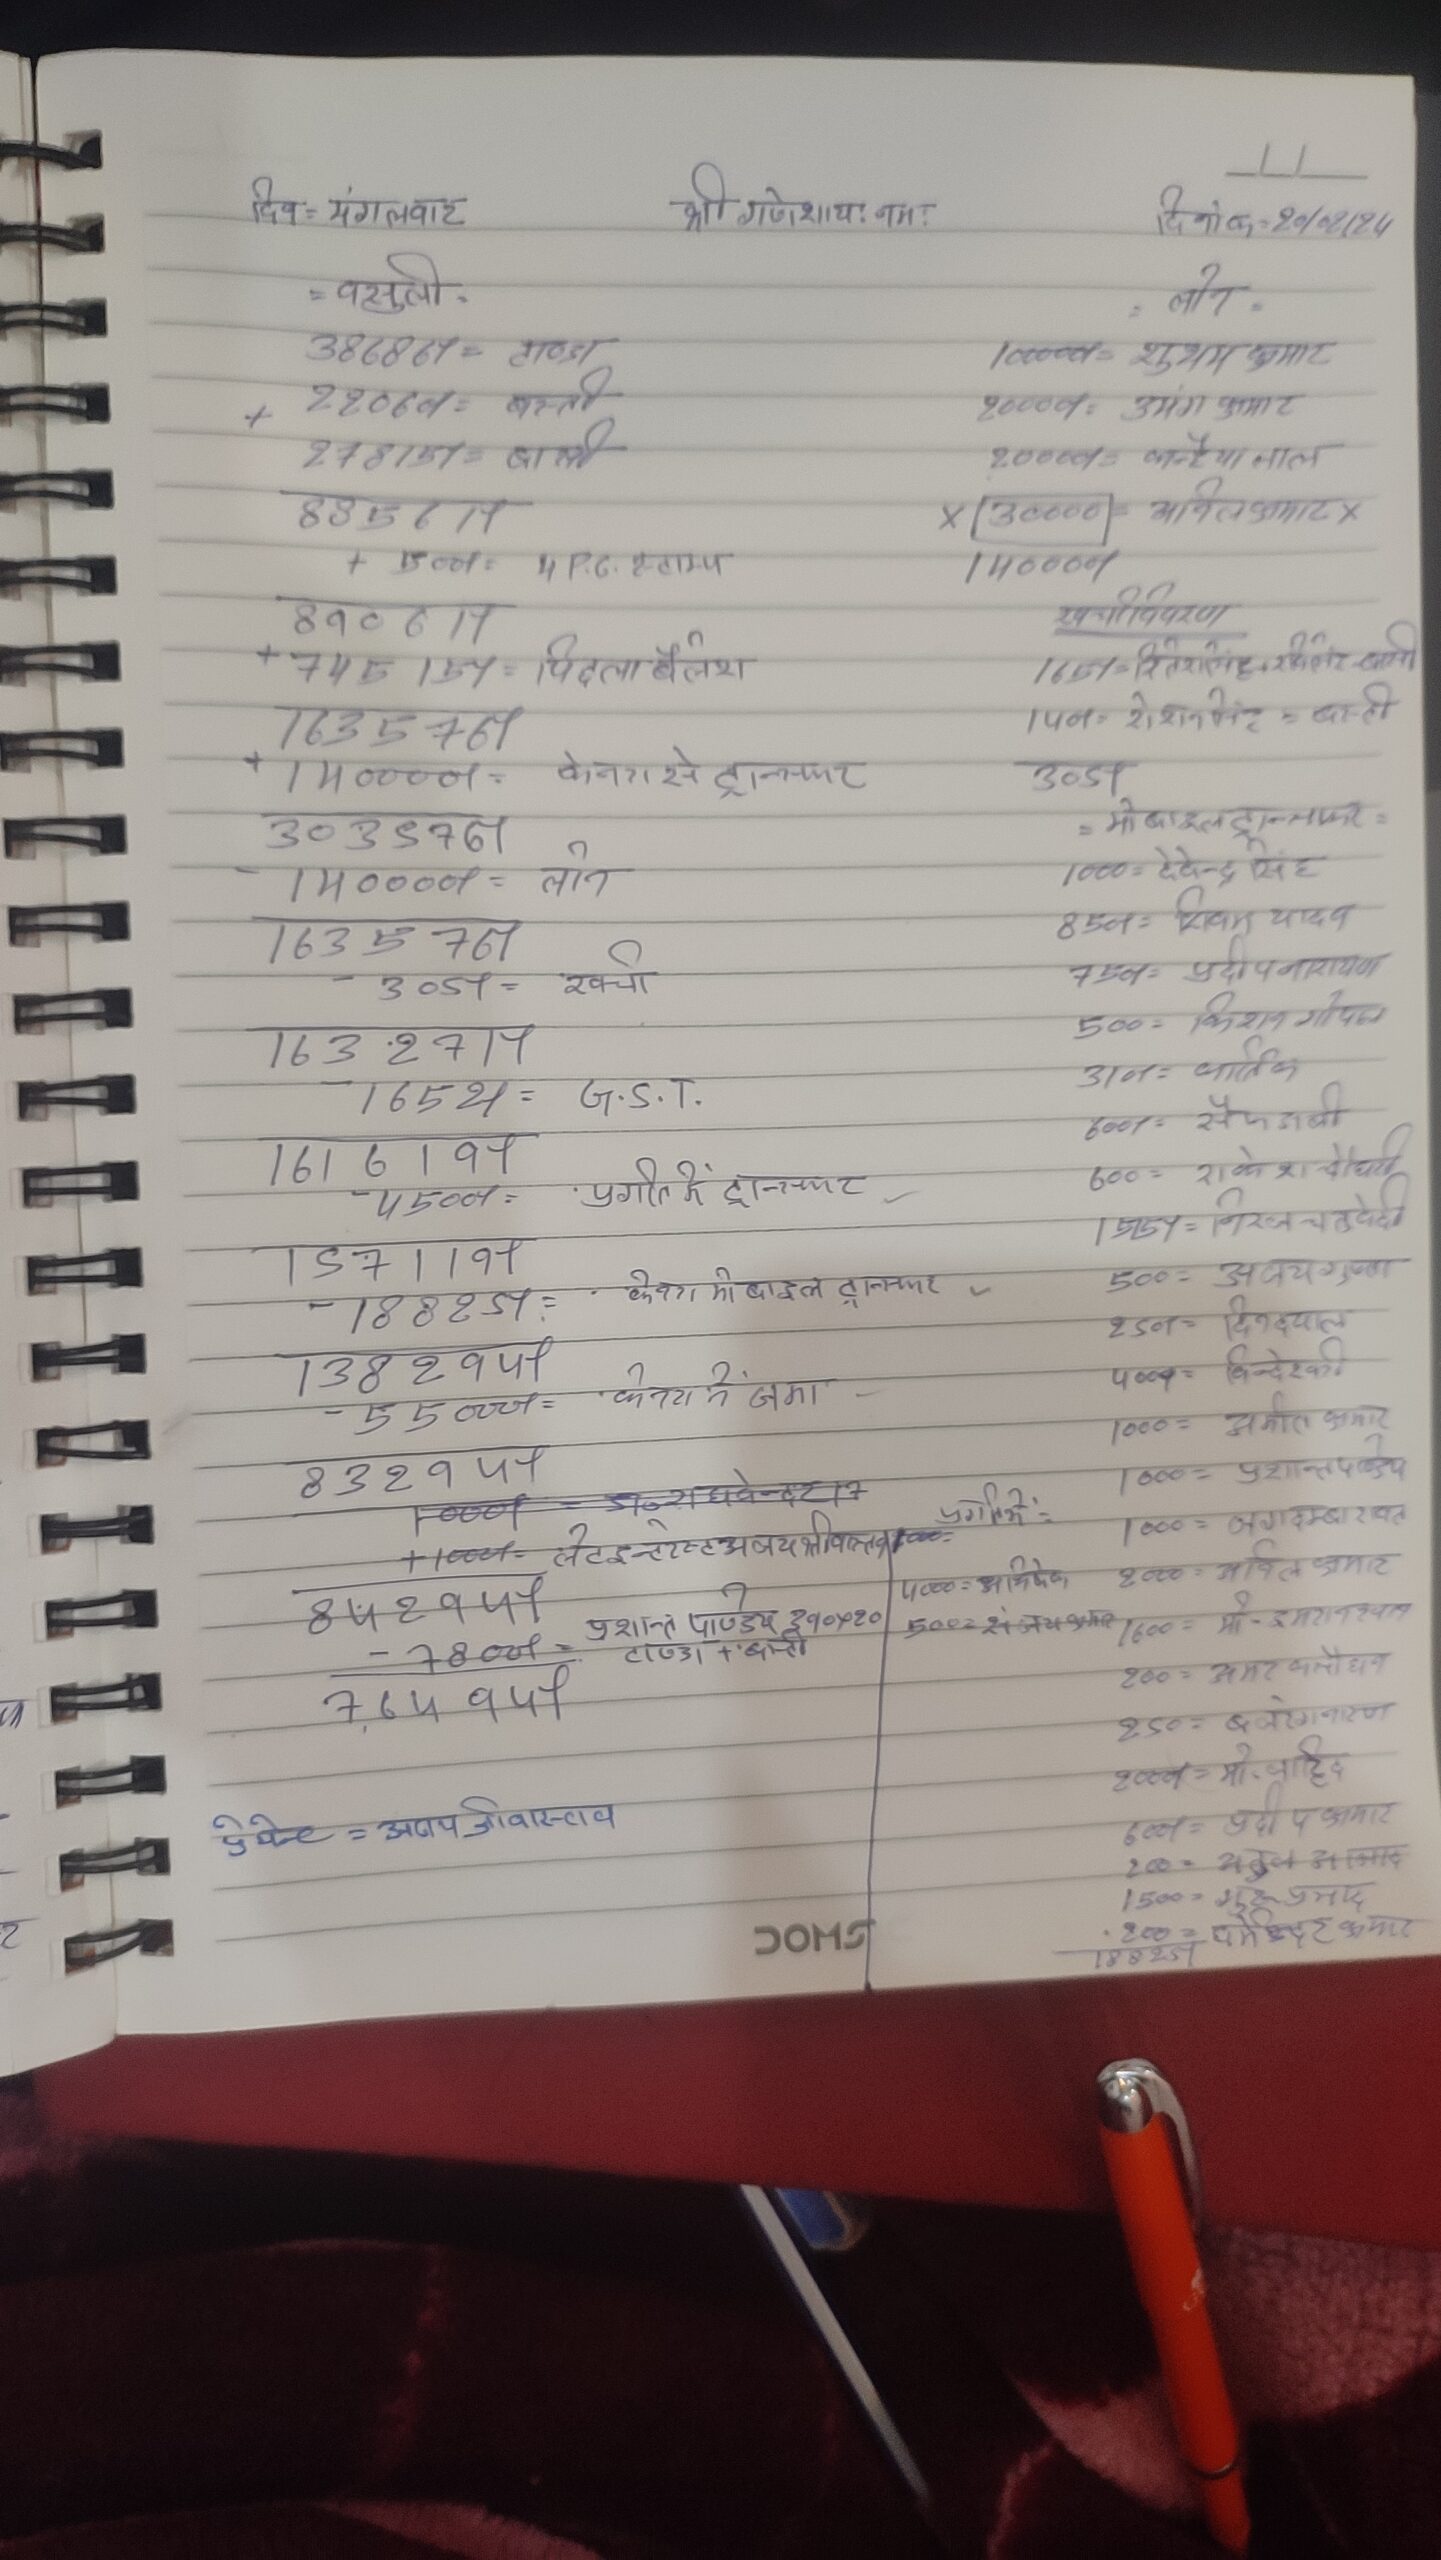 दिन= मंगलवार
श्री गणेशाय: नम:
दिनांक=20/02/24
= वसुली =
38686/= टाण्डा
+ 22060/= बस्ती
27815/=
88561/
+ 500/= 4 P.C. स्टाम्प
89061/
+ 74515/= पिछला बैलेंश
163576/
+ 140000/= केनरा से ट्रान्सफर
303576/
- 140000/= लोन
163576/
- 305/= खर्चा
163271/
- 1652/= G.S.T.
161619/
- 4500/= प्रगति में ट्रान्सफर
157119/
- 18825/= केनरा मोबाइल ट्रान्सफर
138294/
- 55000/= केनरा में जमा
83294/
+ 1000/= लेट इन्टरेस्ट अजय श्रीवास्तव
84294/
- 7800/= प्रशान्त पाण्डेय 390x20
टाण्डा +
76494/
= अजय श्रीवास्तव
= लोन =
100000/= शुभम कुमार
20000/= उमंग कुमार
20000/= कन्हैया लाल
x 30000 = अनिल कुमार x
140000/
खर्चा विवरण
165/=
140/=
305/
= मोबाइल ट्रान्सफर =
1000= देवेन्द्र सिंह
850/= शिवम यादव
750/= प्रदीप नारायण
500= किशन गोपाल
310/= कार्तिक
600/=
600= राकेश चौधरी
155/= निरज चतुर्वेदी
500= अजय गुप्ता
250/= दिनदयाल
400/=
1000= अमीत कुमार
1000= प्रशान्त पाण्डेय
1000= जगदम्बा रावत
2000= अनिल कुमार
1600= मो.
200= अमर
250=
2000/= मो. वाहिद
600/= प्रदीप कुमार
200=
1500= गुरू प्रसाद
200= कुमार
18825/
प्रगति में =
4000= अभिषेक
500= संजय कुमार
DOMS